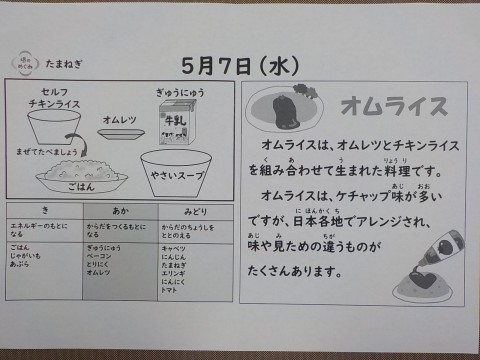 たまねぎ
5月7日(水)
セルフ
チキンライス
オムレツ
ぎゅうにゅう
牛乳
まぜてたべましょう
ごはん
やさいスープ
き
あか
みどり
エネルギーのもとに
なる
からだをつくるもとに
なる
からだのちょうしを
ととのえる
ごはん
じゃがいも
あぶら
ぎゅうにゅう
ベーコン
とりにく
オムレツ
キャベツ
にんじん
たまねぎ
エリンギ
にんにく
トマト
オムライス
オムライスは、オムレツとチキンライス
を組み合わせて生まれた料理です。
オムライスは、ケチャップ味が多い
ですが、日本各地でアレンジされ、
味や見ための違うものが
たくさんあります。